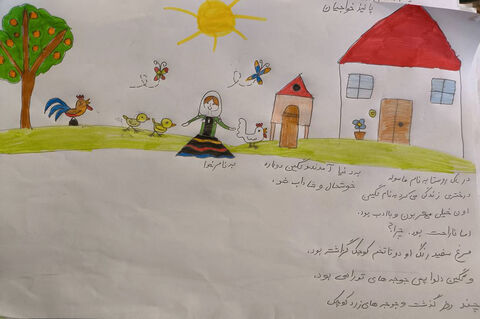 پانیذ
به نام خدا
در یک روستا به نام ماسوله
دختری زندگی می کرد به نام نگین
اون خیلی مهربون و باادب بود.
اما ناراحت بود. چرا؟
مرغ سفید رنگ او دو تا تخم کوچک گذاشته بود.
و نگین دلواپس جوجه های تو راهی بود.
چند روز گذشت و جوجه های زرد کوچک
به دنیا آمدند و نگین دوباره
خوشحال و شاداب شد.